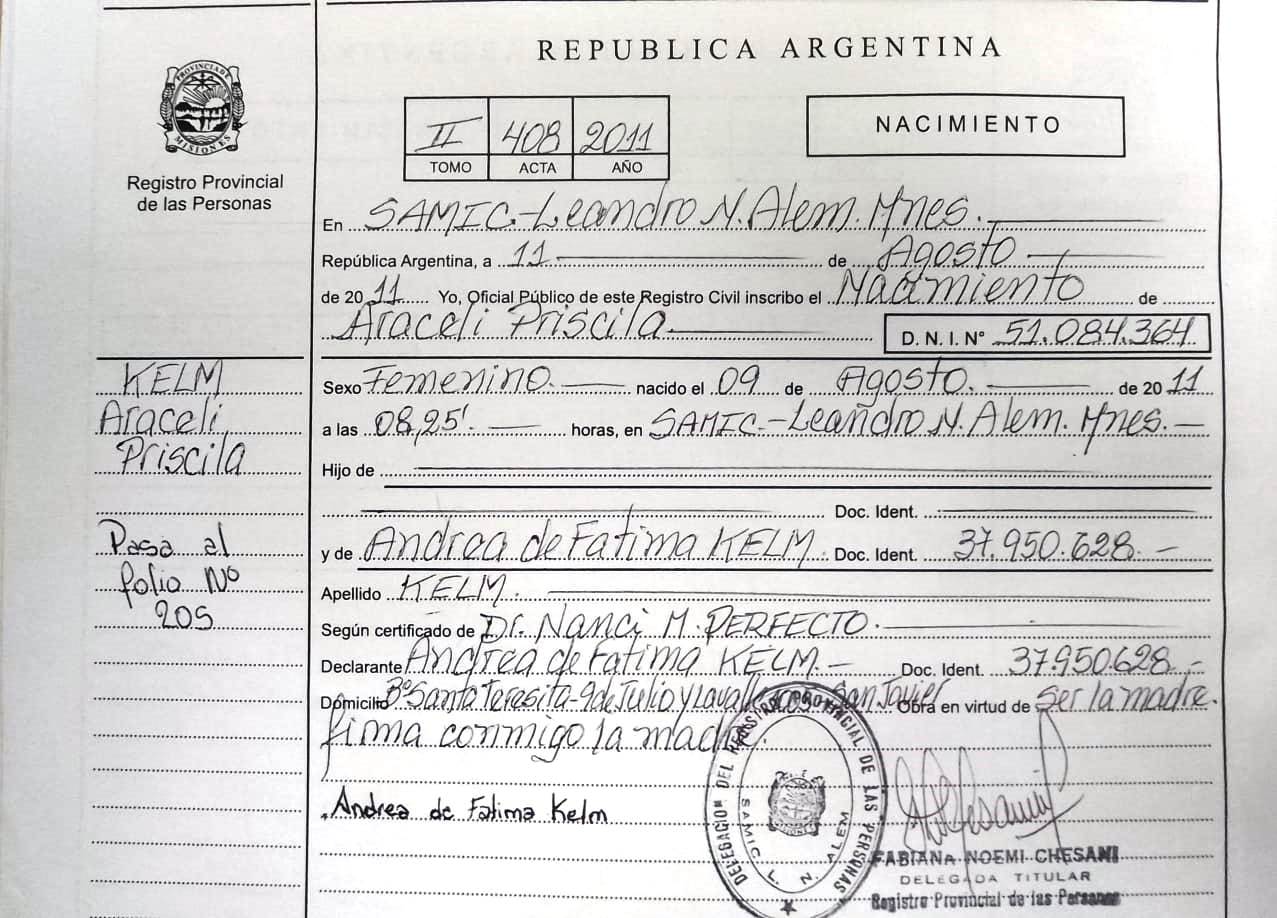 REPUBLICA ARGENTINA
PROVINCIA DE MISIONES
Registro Provincial
de las Personas
II 408 2011
TOMO ACTA AÑO
NACIMIENTO
En SAMIC.-Leandro N. Alem. Mnes.
República Argentina, a 11 de Agosto
de 2011 Yo, Oficial Público de este Registro Civil inscribo el Nacimiento de
Araceli Priscila. D. N. I. N° 51.084.364
KELM
Araceli
Priscila
Pasa al
folio Nº
205
Sexo Femenino. nacido el 09 de Agosto. de 2011
a las 08,25'. horas, en SAMIC.-Leandro N. Alem. Mnes.
Hijo de
Doc. Ident.
y de Andrea de Fatima KELM. Doc. Ident. 37.950.628.-
Apellido KELM.
Según certificado de Dr. Nanci M. PERFECTO.
Declarante Andrea de Fatima KELM.- Doc. Ident. 37.950.628.-
Domicilio Bº Santa Teresita-9 de Julio y San Javier Obra en virtud de ser la madre.
firma conmigo la madre.
Andrea de Fatima Kelm
DELEGACION DEL REGISTRO PROVINCIAL DE LAS PERSONAS
SAMIC L. N. ALEM
MISIONES
FABIANA NOEMI CHESANI
DELEGADA TITULAR
Registro Provincial de las Personas